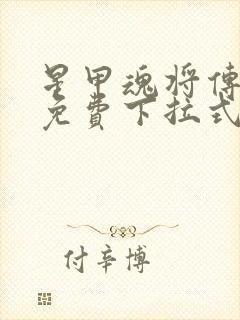 星甲魂将傳
免費下拉式
付辛博